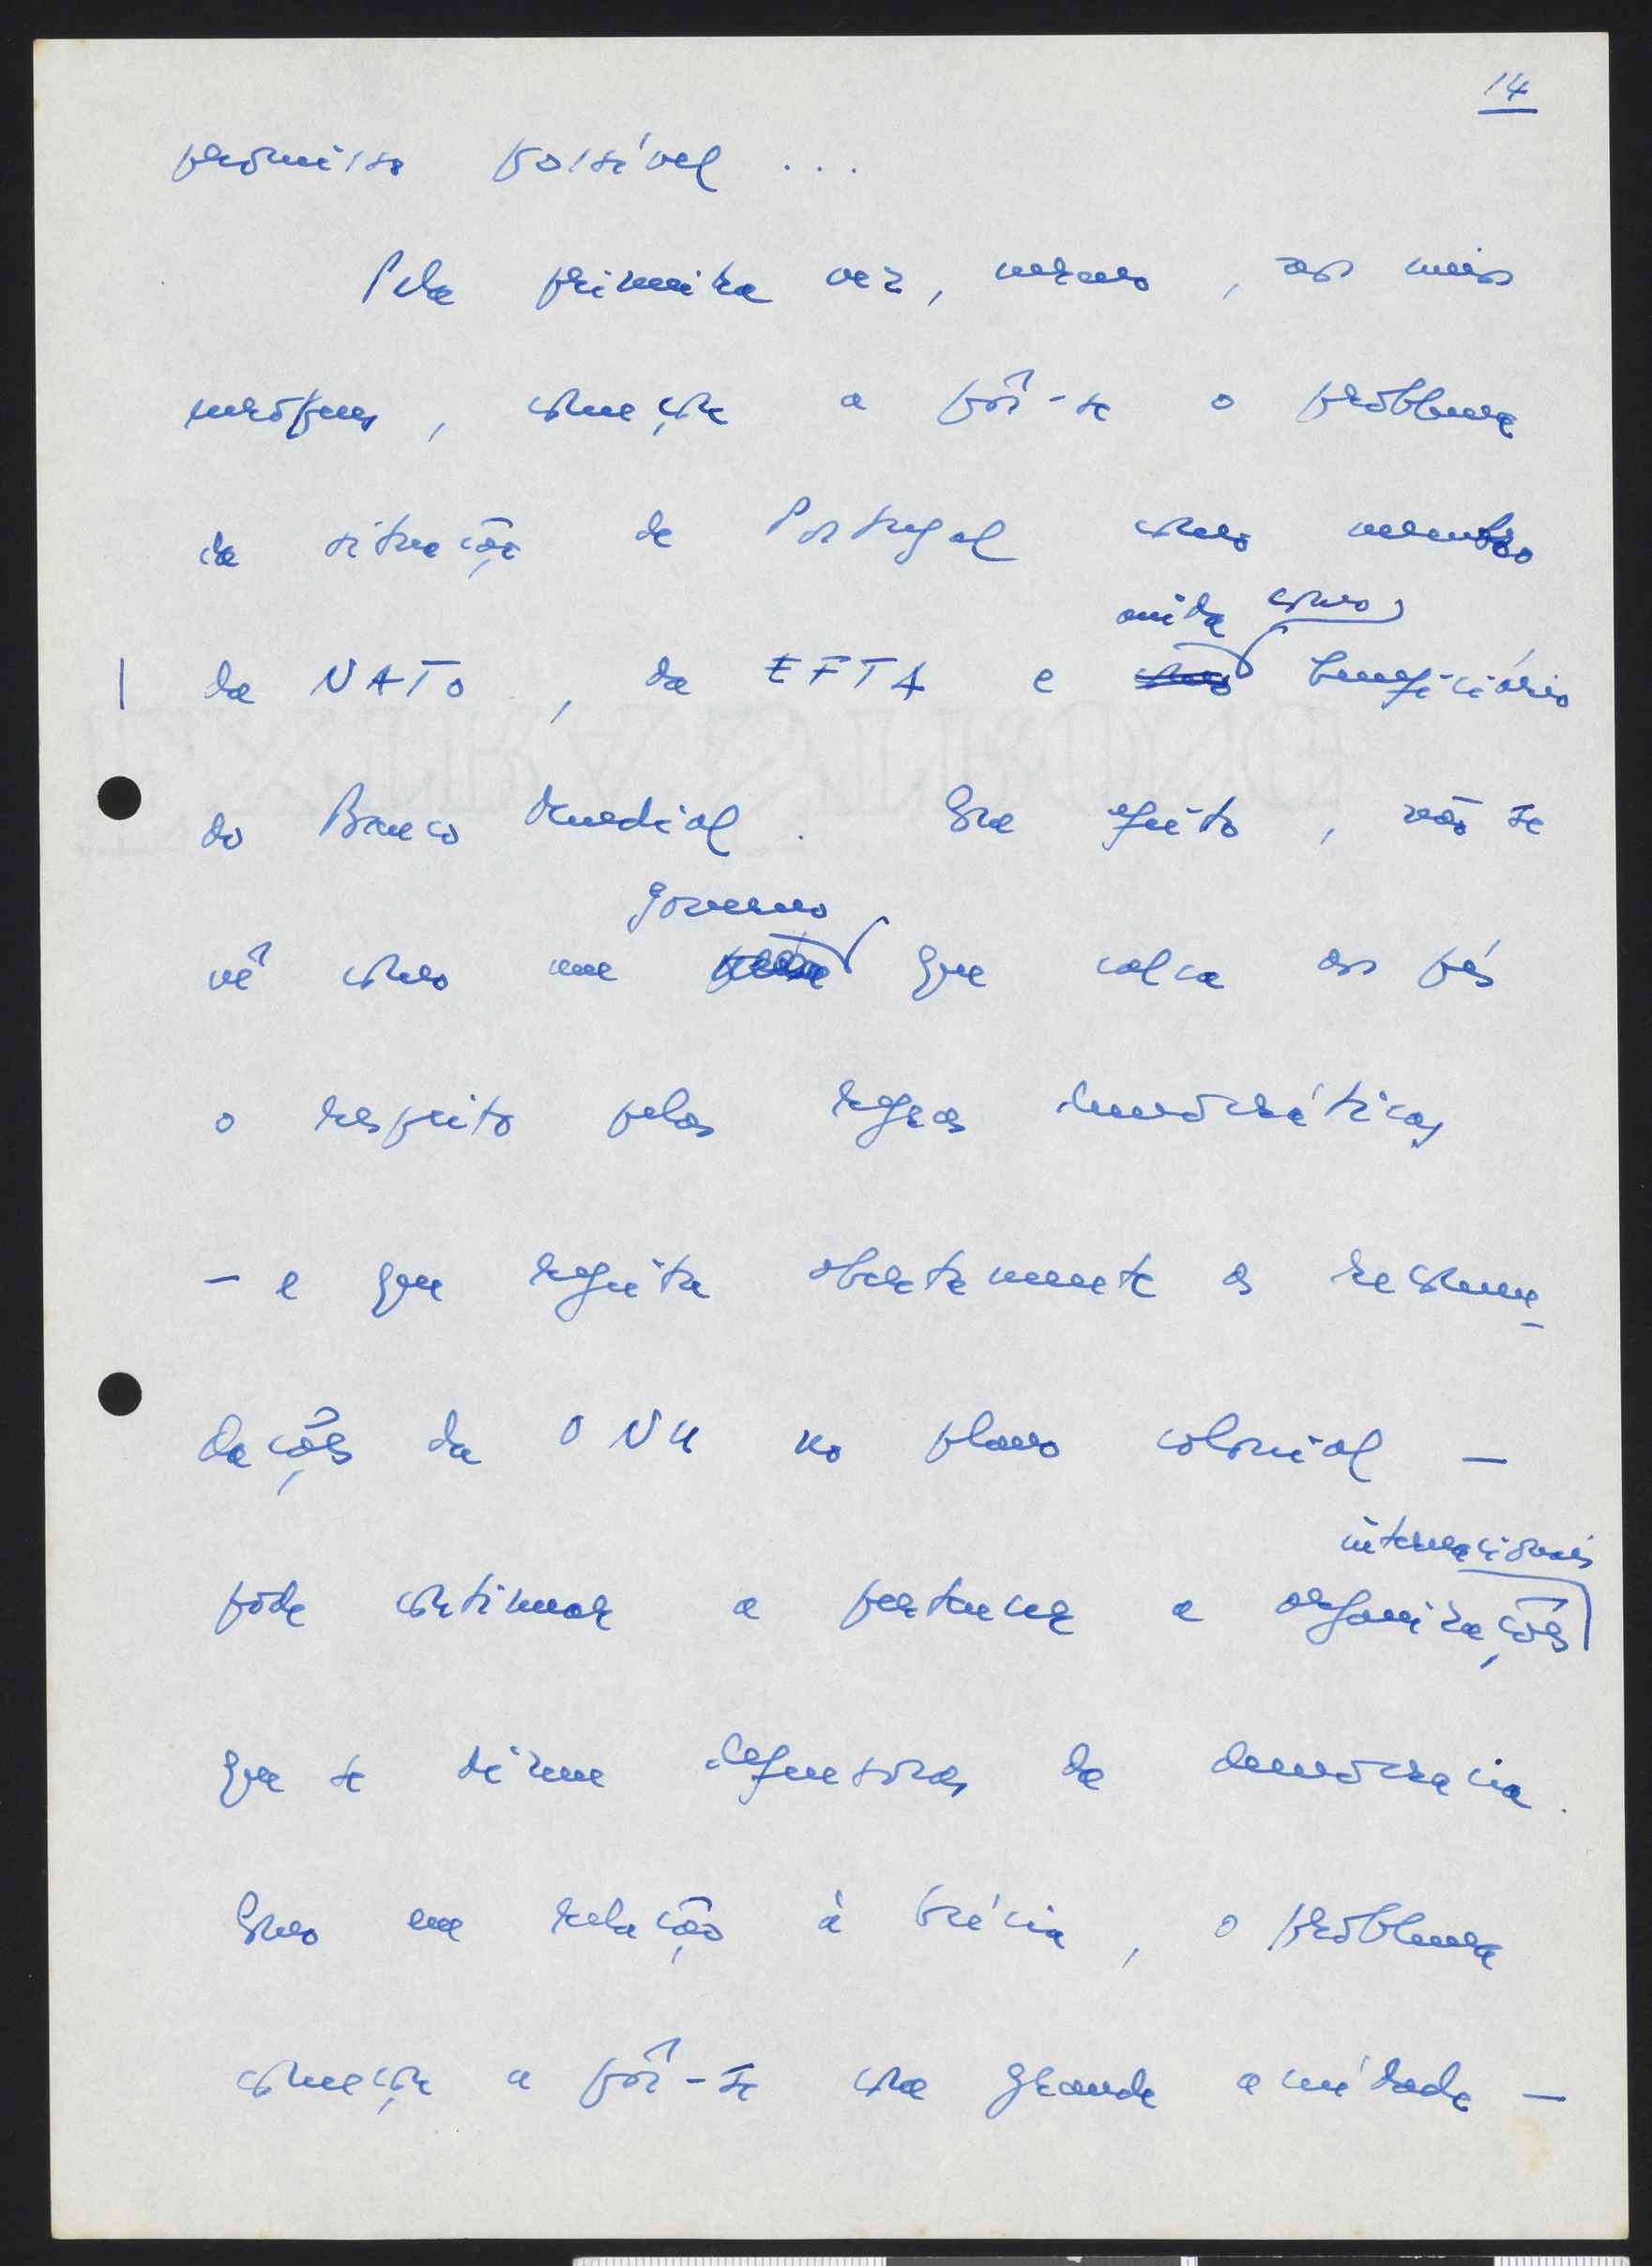 14
promisso possível ...
Pela primeira vez, mesmo, nos meios
europeus, começa a pôr-se o problema
da situação de Portugal como membro
ainda como
da NATO, da EFTA e como beneficiário
do Banco Mundial. Com efeito, não se
governo
vê como um que calca aos pés
o respeito pelas regras democráticas
- e que rejeita abertamente as recomen-
dações da ONU no plano colonial -
internacionais
pode continuar a pertencer a organizações
que se dizem defensoras da democracia.
Como em relação à Grécia, o problema
começa a pôr-se com grande acuidade -